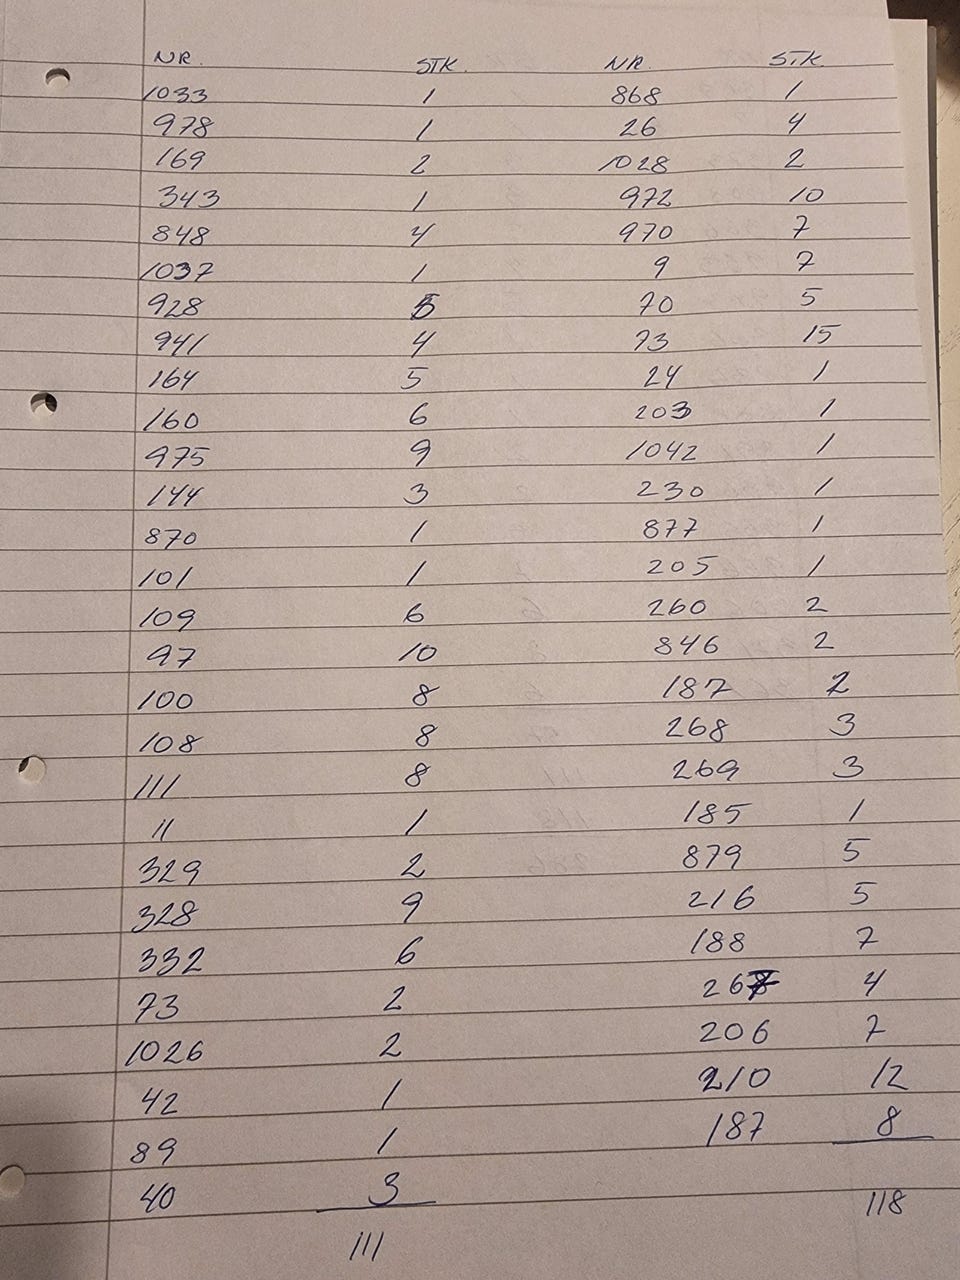 NR. STK. NR. STK.
1033 1 868 1
978 1 26 4
169 2 1028 2
343 1 972 10
848 4 970 7
1037 1 9 7
928 5 70 5
941 4 73 15
164 5 24 1
160 6 203 1
975 9 1042 1
144 3 230 1
870 1 877 1
101 1 205 1
109 6 260 2
97 10 846 2
100 8 187 2
108 8 268 3
111 8 269 3
11 1 185 1
329 2 879 5
328 9 216 5
332 6 188 7
73 2 267 4
1026 2 206 7
42 1 210 12
89 1 187 8
40 3
111 118